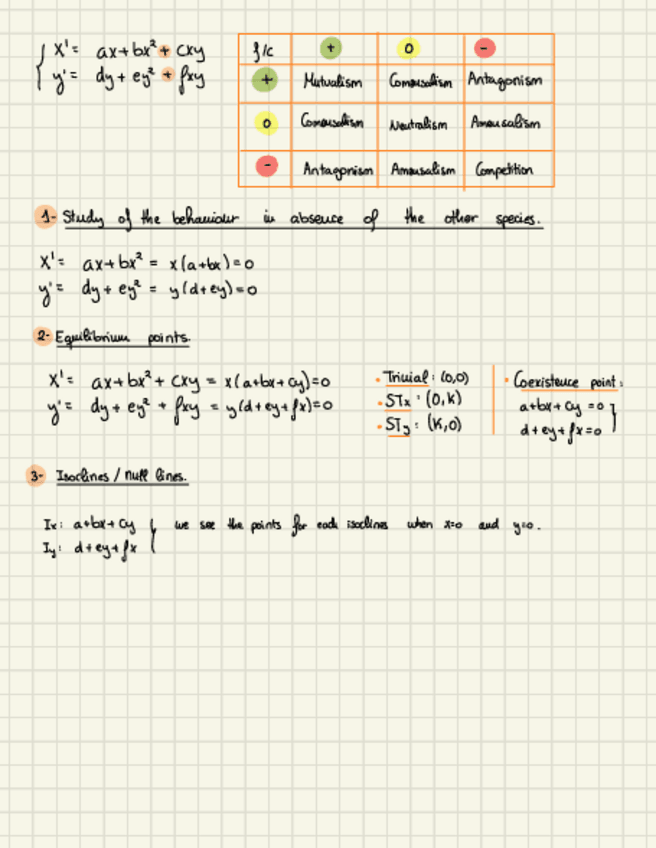 x' = ax + bx² + cxy
y' = dy + ey² + fxy
f/c + 0 -
+ Mutualism Comensalism Antagonism
0 Comensalism Neutralism Amensalism
- Antagonism Amensalism Competition
1- Study of the behaviour in absence of the other species.
x' = ax + bx² = x(a+bx) = 0
y' = dy + ey² = y(d+ey) = 0
2- Equilibrium points.
x' = ax + bx² + cxy = x(a+bx+cy) = 0
y' = dy + ey² + fxy = y(d+ey+fx) = 0
• Trivial: (0,0)
• STx: (0,K)
• STy: (K,0)
• Coexistence point:
a+bx+cy = 0
d+ey+fx = 0
3- Isoclines / null lines.
Ix: a+bx+cy
Iy: d+ey+fx
we see the points for each isoclines when x=0 and y=0.